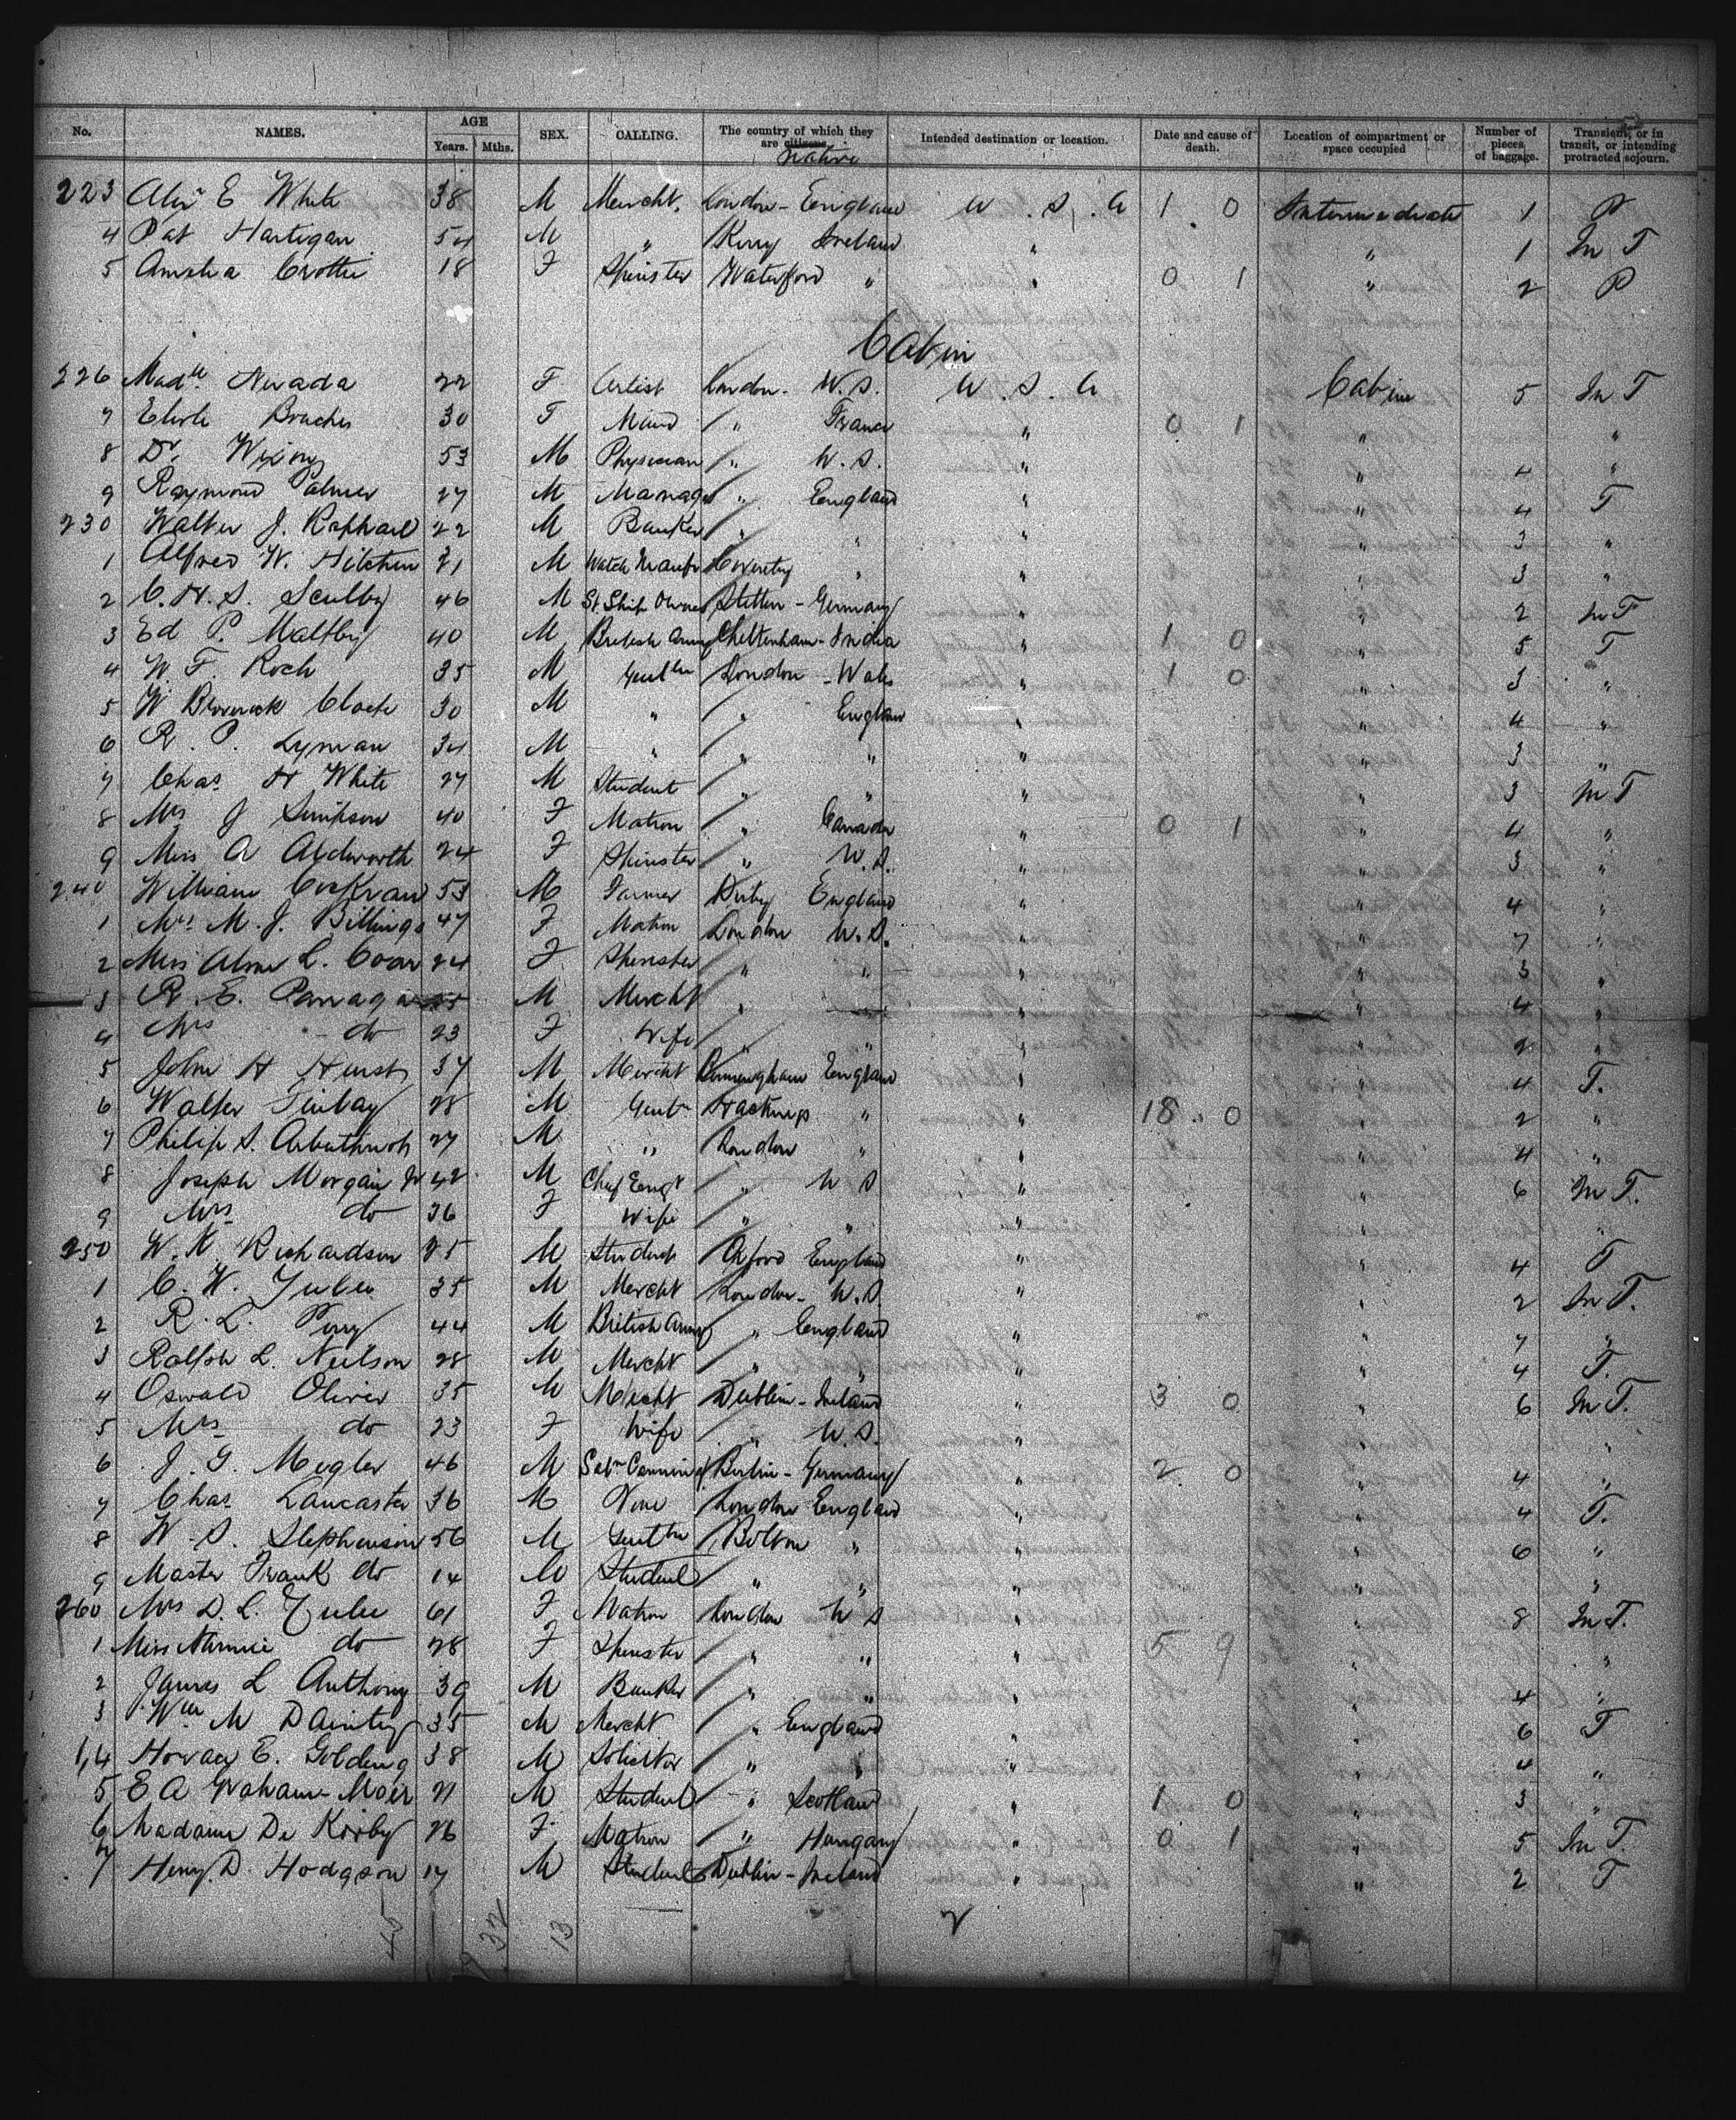 No. NAMES. AGE Years. Mths. SEX. CALLING. The country of which they are citizens. native Intended destination or location. Date and cause of death. Location of compartment or space occupied Number of pieces of baggage. Transient, or in transit, or intending protracted sojourn.
223 Alexr E White 38 M Mercht. London - England U . S . A 1 0 Intermediate 1 P
4 Pat Hartigan 54 M " Kerry Ireland " " 1 In T
5 Amelia Crottie 18 F Spinster Waterford " " 0 1 " 2 P
Cabin
226 Madlle Nevada 22 F Artist London - U.S. U . S . A Cabin 5 In T
7 30 F Maid " France " 0 1 " "
8 Dr. Wixom 53 M Physician " U.S. " " 4 "
9 Raymond Palmer 27 M Manager " England " " 4 T
230 Walter J. Raphael 22 M Banker " " " " 3 "
1 Alfred W. Hitchin 21 M Watch Manufr Coventry " " " 3 "
2 C. H. S. 46 M St. Ship Owner Stettin - Germany " 2 In T
3 Ed P. Maltby 40 M British Army Cheltenham - India " 1 0 " 5 T
4 W. F. Roch 35 M Gentln London - Wales " 1 0 " 3 "
5 W 30 M " " England " " 4 "
6 R. P. Lyman 34 M " " " " " 3 "
7 Chas H White 27 M Student " " " " 3 In T
8 Mrs J Simpson 40 F Matron " Canada " 0 1 " 4 "
9 Miss A Aldworth 24 F Spinster " U.S. " " 3 "
240 William Cockran 53 M Farmer Derby England " " 4 "
1 Mrs M. J. Billings 47 F Matron London U.S. " " 7 "
2 Miss L. 24 F Spinster " " " " 3 "
3 R. E. M Mercht " " " " 4 "
4 Mrs do 23 F Wife " " " " 2 "
5 John H Hurst 37 M Mercht Birmingham England " " 4 T.
6 Walter Finlay 28 M Gentn Hastings " " 18 0 " 2 "
7 Philip S. Arbuthnot 27 M " London " " " 4 "
8 Joseph Morgan Jr 42 M Chief Engr " U S " " 6 In T.
9 Mrs do 36 F Wife " " " "
250 W. K. Richardson 25 M Student Oxford England " 4 T
1 C. H. Yulee 35 M Mercht London - U.S. " " 2 In T.
2 R. L. 44 M British Army " England " " 7 "
3 Ralph L. Neilson 28 M Mercht " " " " 4 T.
4 Oswald Oliver 35 M Mercht Dublin - Ireland " 3 0 " 6 In T.
5 Mrs do 23 F Wife " U.S. " "
6 J. G. Megler 46 M Berlin - Germany " 2 0 " 4 "
7 Chas Lancaster 36 M None London England " " 4 T.
8 W. S. Stephenson 56 M Gentln Bolton " " " 6 "
9 Master Frank do 14 M Student " " " " "
260 Mrs D. L. Yulee 61 F Matron London U S " " 8 In T.
1 Miss do 28 F Spinster " " " 5 9 " "
2 James L Anthony 39 M Banker " " " " 4 "
3 Wm M Dainty 35 M Mercht " England " " 6 T
14 Horace E. Golding 38 M Solicitor " " " " 4 "
5 E A Graham - Moir 21 M Student " Scotland " 1 0 " 3 "
6 Madame De Kirby 26 F Matron " Hungary " 0 1 " 5 In T.
7 Henry D. Hodgson 17 M Student Dublin - Ireland " " 2 T
45 32 13